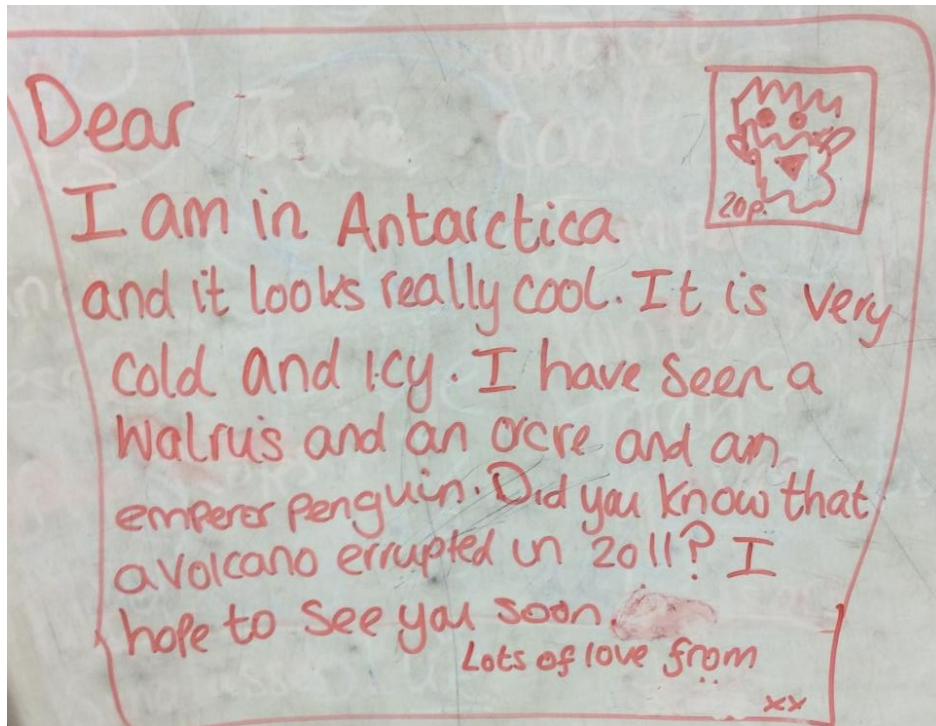 Dear
20p.
I am in Antarctica
and it looks really cool. It is very
cold and icy. I have seen a
walrus and an orcre and an
emperor penguin. Did you know that
a volcano errupted in 2011? I
hope to see you soon.
Lots of love from
xx